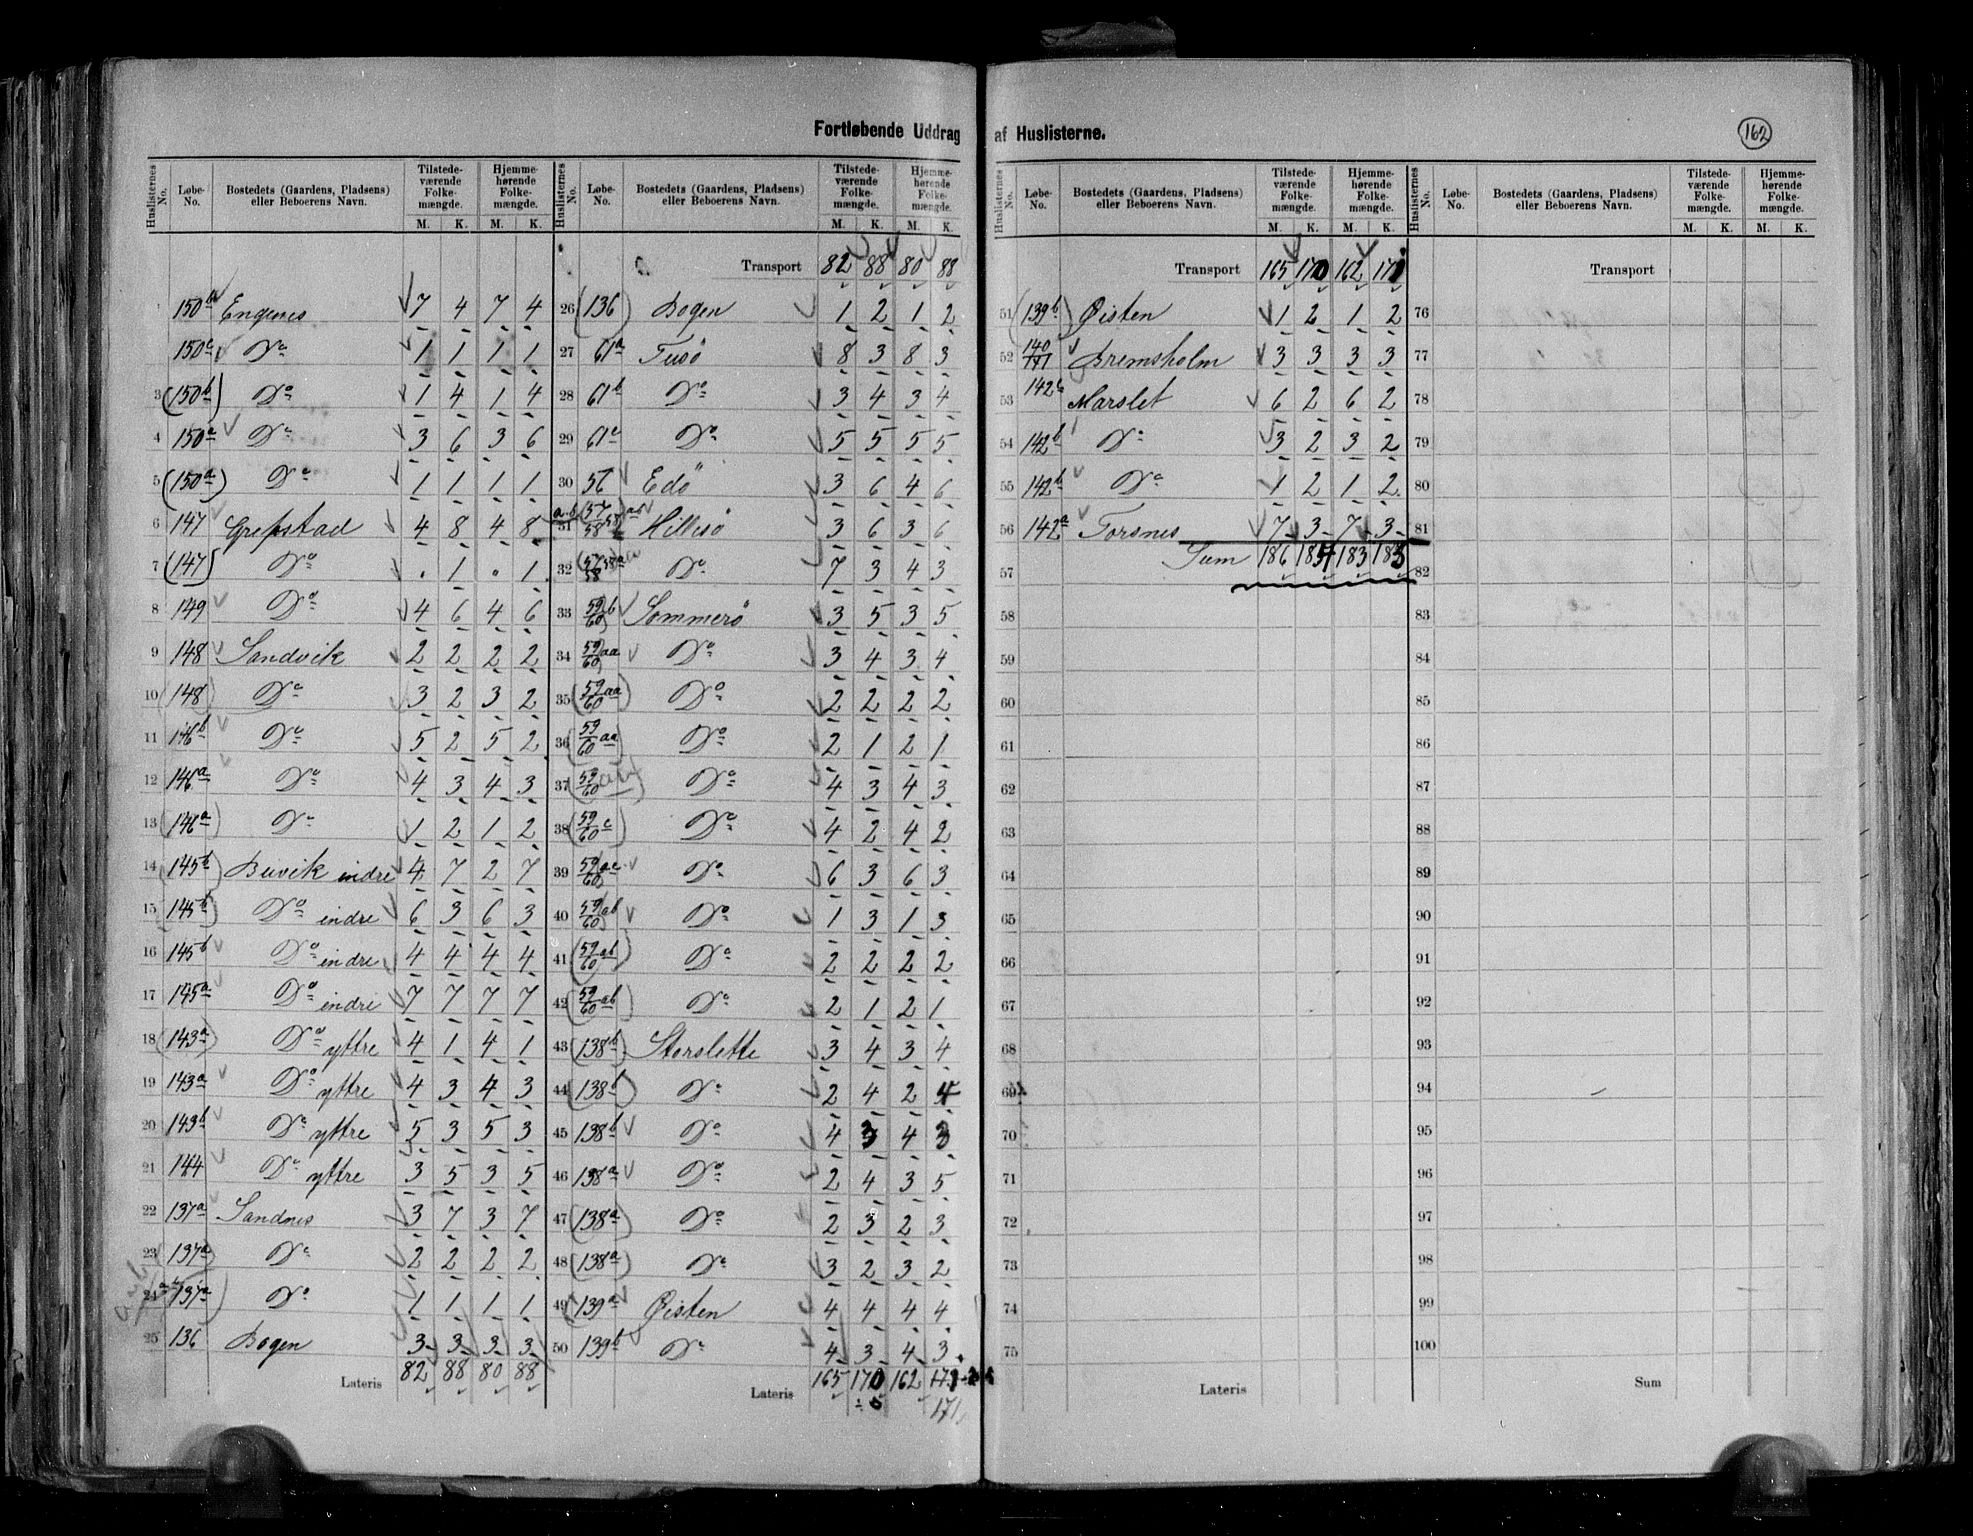 Fortløbende Uddrag af Huslisterne.
162
Huslisternes No. | Løbe-No. | Bostedets (Gaardens, Pladsens) eller Beboerens Navn. | Tilstedeværende Folkemængde. M. K. | Hjemmehørende Folkemængde. M. K.
150 Engenes 7 4 7 4
150c Do 1 1 1 1
3 (150b) Do 1 4 1 4
4 150a Do 3 6 3 6
5 (150a) Do 1 1 1 1
6 147 Grepstad 4 8 4 8
7 (147) Do . 1 . 1
8 149 Do 4 6 4 6
9 148 Sandvik 2 2 2 2
10 (148) Do 3 2 3 2
11 146b Do 5 2 5 2
12 146a Do 4 3 4 3
13 (146a) Do 1 2 1 2
14 (145b) Buvik indre 4 7 2 7
15 (145b) Do indre 6 3 6 3
16 145b Do indre 4 4 4 4
17 145a Do indre 7 7 7 7
18 (143a) Do yttre 4 1 4 1
19 143a Do yttre 4 3 4 3
20 143b Do yttre 5 3 5 3
21 144 Do yttre 3 5 3 5
22 137a Sandnes 3 7 3 7
23 (137a) Do 2 2 2 2
24 (137a) Do 1 1 1 1
25 136 Bogen 3 3 3 3
Lateris 82 88 80 88
Huslisternes No. | Løbe-No. | Bostedets (Gaardens, Pladsens) eller Beboerens Navn. | Tilstedeværende Folkemængde. M. K. | Hjemmehørende Folkemængde. M. K.
Transport 82 88 80 88
26 (136) Bogen 1 2 1 2
27 61a Tusö 8 3 8 3
28 61b Do 3 4 3 4
29 61c Do 5 5 5 5
30 56 Edö 3 6 4 6
31 Hillesö 3 6 3 6
32 Do 7 3 4 3
33 59/60 b Sommerö 3 5 3 5
34 59/60 aa Do 3 4 3 4
35 (59/60 aa) Do 2 2 2 2
36 (59/60 aa) Do 2 1 2 1
37 59/60 Do 4 3 4 3
38 (59/60 c) Do 4 2 4 2
39 59/60 ac Do 6 3 6 3
40 59/60 ab Do 1 3 1 3
41 (59/60 ab) Do 2 2 2 2
42 (59/60 ab) Do 2 1 2 1
43 (138b) Storslette 3 4 3 4
44 (138b) Do 2 4 2 4
45 138b Do 4 3 4 3
46 138a Do 2 4 3 5
47 (138a) Do 2 3 2 3
48 (138a) Do 3 2 3 2
49 139a Øisten 4 4 4 4
50 139b Do 4 3 4 3
Lateris 165 170 162 171
171
Huslisternes No. | Løbe-No. | Bostedets (Gaardens, Pladsens) eller Beboerens Navn. | Tilstedeværende Folkemængde. M. K. | Hjemmehørende Folkemængde. M. K.
Transport 165 170 162 171
51 (139b) Øisten 1 2 1 2
52 140/141 Bremsholm 3 3 3 3
53 142c Marslet 6 2 6 2
54 142b Do 3 2 3 2
55 142b Do 1 2 1 2
56 142a Torsnes 7 3 7 3
57 Sum 186 184 183 185
58
59
60
61
62
63
64
65
66
67
68
69
70
71
72
73
74
75
Lateris
Huslisternes No. | Løbe-No. | Bostedets (Gaardens, Pladsens) eller Beboerens Navn. | Tilstedeværende Folkemængde. M. K. | Hjemmehørende Folkemængde. M. K.
Transport
76
77
78
79
80
81
82
83
84
85
86
87
88
89
90
91
92
93
94
95
96
97
98
99
100
Sum